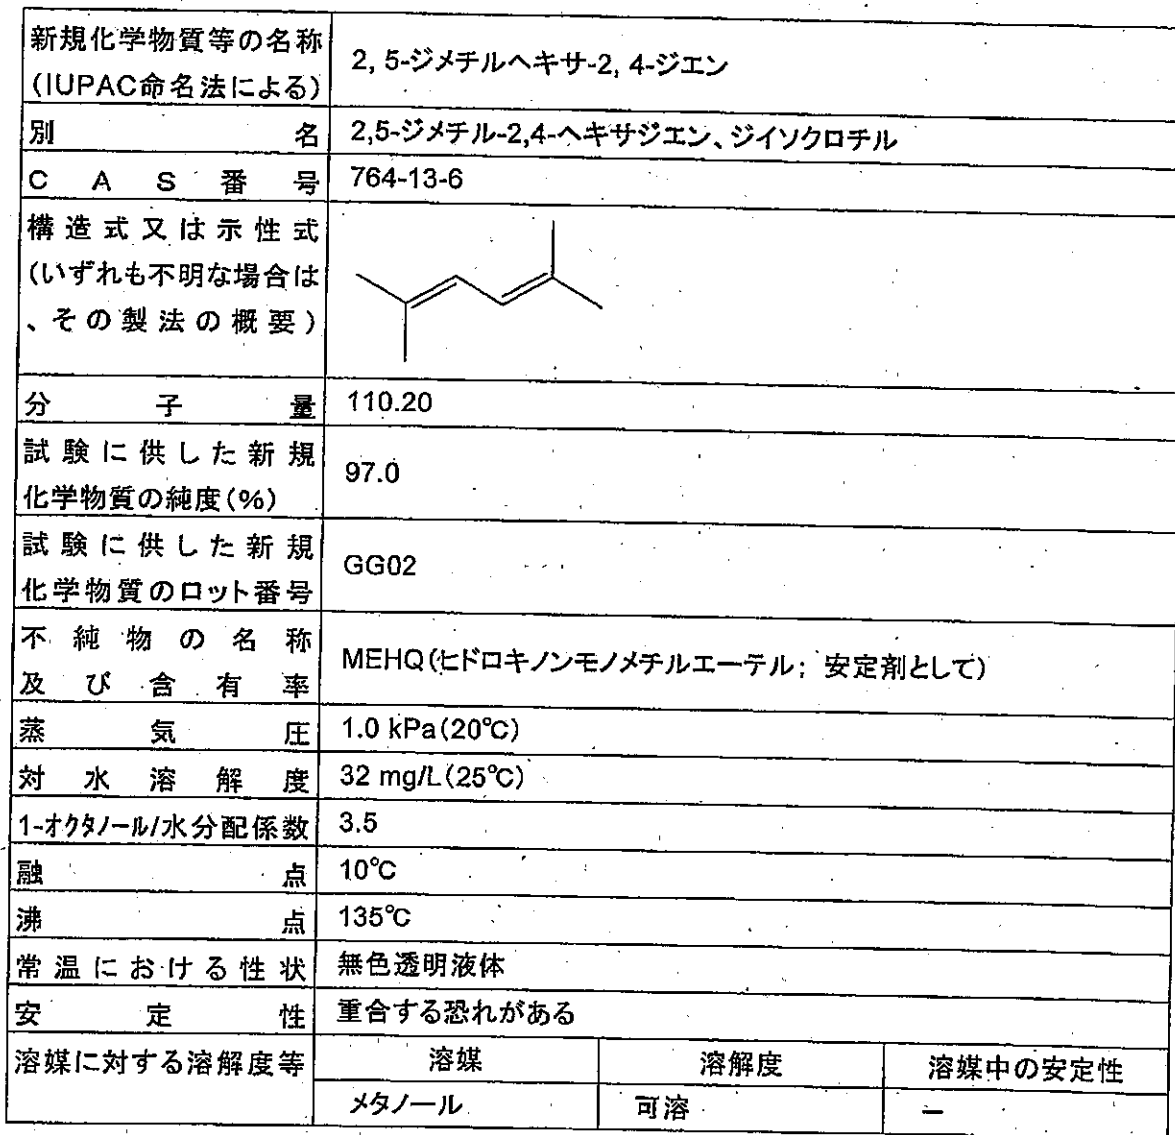 新規化学物質等の名称
(IUPAC命名法による)
2, 5-ジメチルヘキサ-2, 4-ジエン
別名
2,5-ジメチル-2,4-ヘキサジエン、ジイソクロチル
CAS番号
764-13-6
構造式又は示性式
(いずれも不明な場合は
、その製法の概要)
分子量
110.20
試験に供した新規
化学物質の純度(%)
97.0
試験に供した新規
化学物質のロット番号
GG02
不純物の名称
及び含有率
MEHQ(ヒドロキノンモノメチルエーテル; 安定剤として)
蒸気圧
1.0 kPa(20℃)
対水溶解度
32 mg/L(25℃)
1-オクタノール/水分配係数
3.5
融点
10℃
沸点
135℃
常温における性状
無色透明液体
安定性
重合する恐れがある
溶媒に対する溶解度等
溶媒 溶解度 溶媒中の安定性
メタノール 可溶 −